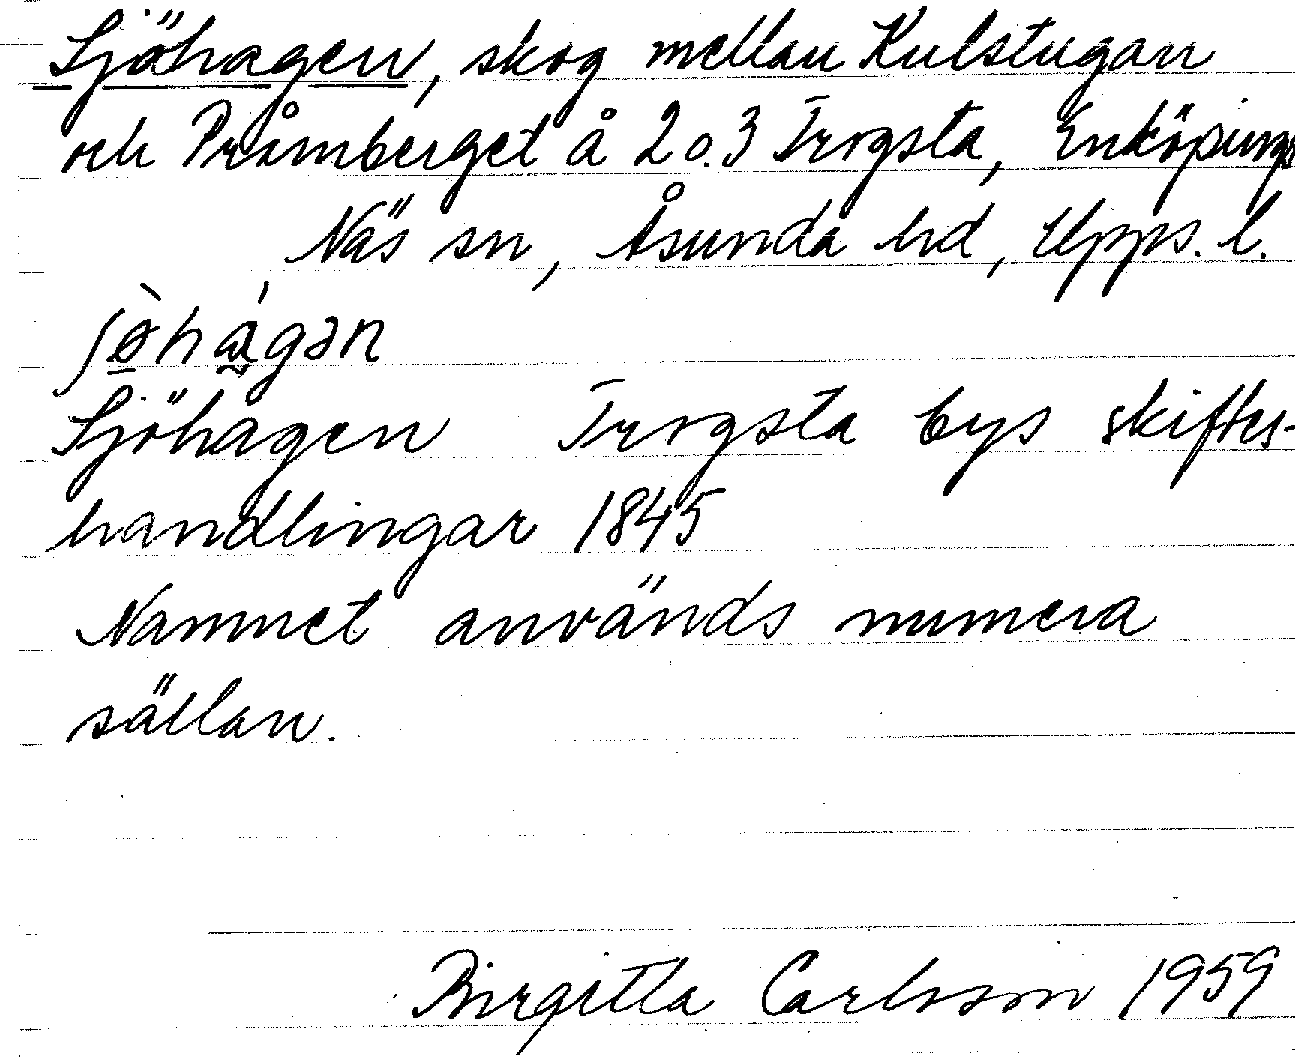 Sjöhagen, skog mellan Kulstugan
och Pråmberget å 2 o. 3 Trogsta, Enköpings
Näs sn, Åsunda hd, Upps. l.
ʃö̀hágən
Sjöhagen Trogsta bys skiftes-
handlingar 1845
Namnet används numera
sällan.
Birgitta Carlsson 1959